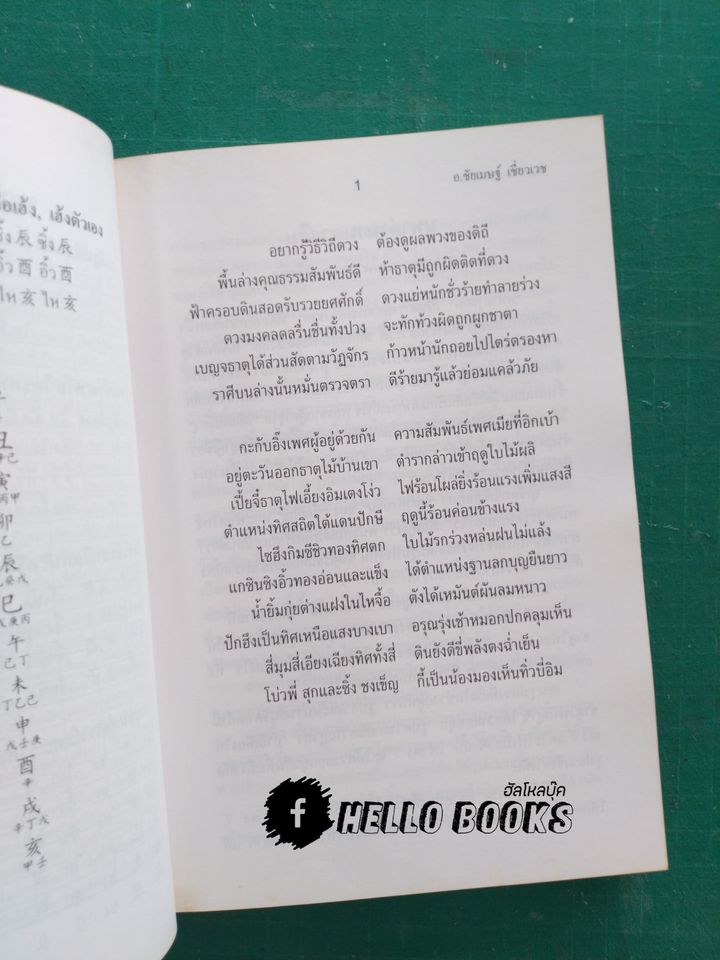 อเฮ้ง, เฮ้งตัวเอง
辰 ซิ้ง 辰
อิ้ว 酉 อิ้ว 酉
ไห 亥 ไห 亥
丑
寅
丙甲
卯
辰
巳
午
己丁
未
丁乙己
申
戊壬庚
酉
辛
戌
辛丁戊
亥
甲壬
1
อ.ชัยเมษฐ์ เชี่ยวเวช
อยากรู้วิธีวิถีดวง ต้องดูผลพวงของดิถี
พื้นล่างคุณธรรมสัมพันธ์ดี ห้าธาตุมีถูกผิดติดที่ดวง
ฟ้าครอบดินสอดรับรวยยศศักดิ์ ดวงแย่หนักชั่วร้ายทำลายร่วง
ดวงมงคลดลรื่นชื่นทั้งปวง จะทักท้วงผิดถูกผูกชาตา
เบญจธาตุได้ส่วนสัดตามวัฏจักร ก้าวหน้านักถอยไปไตร่ตรองหา
ราศีบนล่างนั้นหมั่นตรวจตรา ดีร้ายมารู้แล้วย่อมแคล้วภัย
กะกับอิ๊งเพศผู้อยู่ด้วยกัน ความสัมพันธ์เพศเมียที่อิกเบ้า
อยู่ตะวันออกธาตุไม้บ้านเขา ตำรากล่าวเข้าฤดูใบไม้ผลิ
เปี้ยจี๋ธาตุไฟเอี้ยงอิมเตงโง่ว ไฟร้อนโผล่ยิ่งร้อนแรงเพิ่มแสงสี
ตำแหน่งทิศสถิตใต้แดนปักษี ฤดูนี้ร้อนค่อนข้างแรง
ไซฮึงกิมซีชิวทองทิศตก ใบไม้รกร่วงหล่นฝนไม่แล้ง
แกซินซิงอิ้วทองอ่อนและแข็ง ได้ตำแหน่งฐานลกบุญยืนยาว
น้ำยิ้มกุ่ยต่างแฝงในไหจื้อ ตังได้เหมันต์ผันลมหนาว
ปักฮึงเป็นทิศเหนือแสงบางเบา อรุณรุ่งเช้าหมอกปกคลุมเห็น
สี่มุมสี่เอียงเฉียงทิศทั้งสี่ ดินยังดีขี่พลังดงฉ่ำเย็น
โบ่วพี่ สุกและซิ้ง ชงเข็ญ กี้เป็นน้องมองเห็นทิ่วบี่อิม
ฮัลโหลบุ๊ค
f HELLO BOOKS